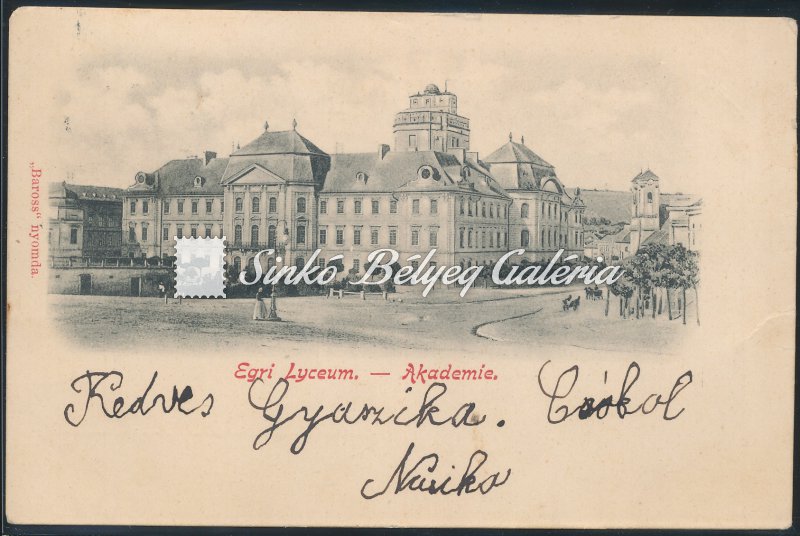 „Baross“ nyomda.
Sinkó Bélyeg Galéria
Egri Lyceum. — Akademie.
Kedves Gyuszika. Csókol
Nusika